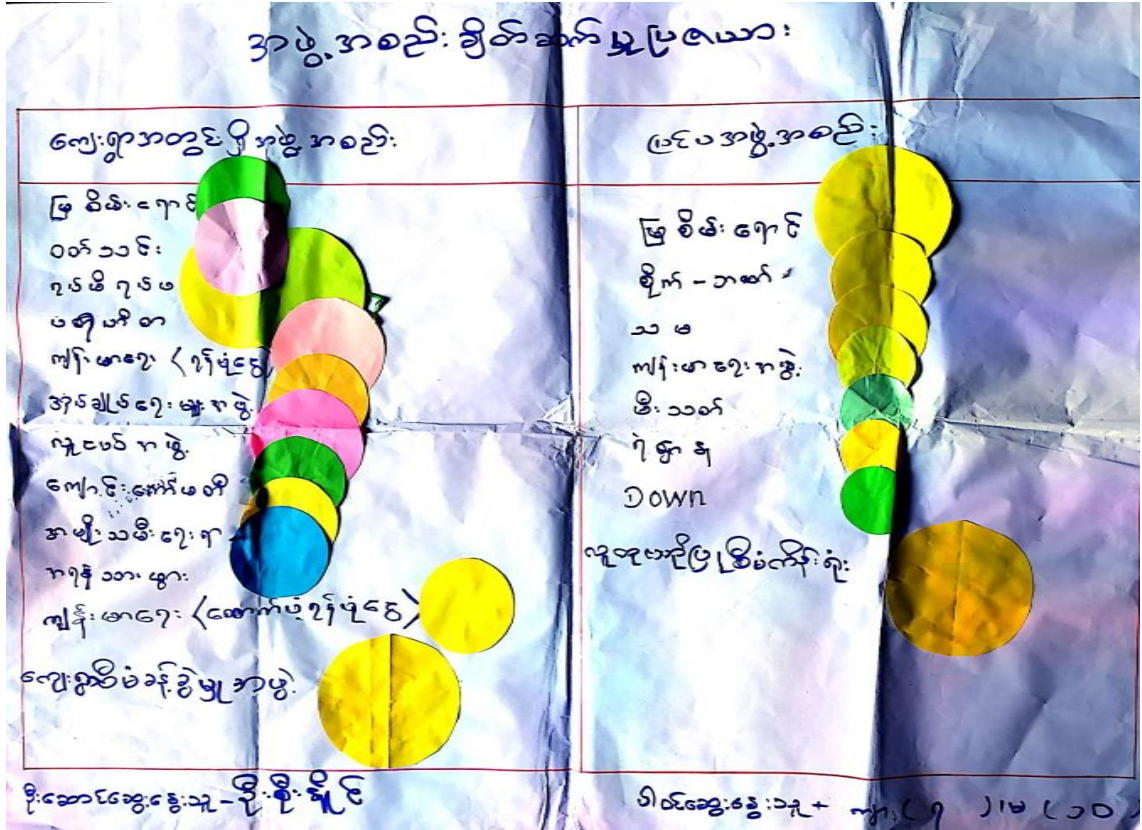 အဖွဲ့အစည်းချိတ်ဆက်မှုပြဇယား
ကျေးရွာအတွင်းရှိအဖွဲ့အစည်း
မြစိမ်းရောင်
ဝတ်သင်း
ရပ်မိရပ်ဖ
ကျန်းမာရေး (ရန်ပုံငွေ)
အုပ်ချုပ်ရေးမှူးအဖွဲ့
လူငယ်အဖွဲ့
ကျောင်းကော်မတီ
အမျိုးသမီးရေးရာ
အရန်သားဖွား
ကျန်းမာရေး (ထောက်ပံ့ရန်ပုံငွေ)
ကျေးရွာစီမံခန့်ခွဲမှုအဖွဲ့
ဦးဆောင်ဆွေးနွေးသူ - ဦးစိုးနိုင်
ပြင်ပအဖွဲ့အစည်း
မြစိမ်းရောင်
စိုက် - ဘဏ်
သမ
ကျန်းမာရေးအဖွဲ့
မီးသတ်
ရဲဌာန
DOWN
လူထုဗဟိုပြုစီမံကိန်းရုံး
ပါဝင်ဆွေးနွေးသူ + ကျား (၇) ၊ မ (၁၀)